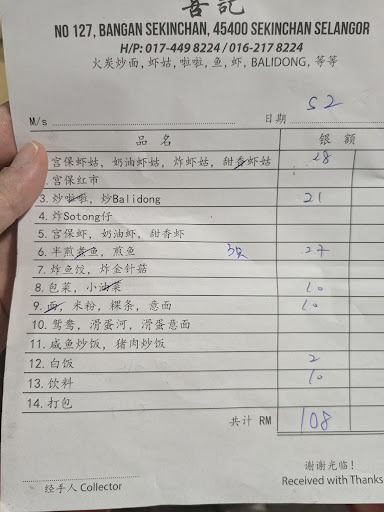 吾記
NO 127, BANGAN SEKINCHAN, 45400 SEKINCHAN SELANGOR
H/P: 017-449 8224 / 016-217 8224
火炭炒面, 虾姑, 啦啦, 鱼, 虾, BALIDONG, 等等
M/s 日期 52
品 名 银 额
宫保虾姑, 奶油虾姑, 炸虾姑, 甜香虾姑 28
. 宫保红市
3. 炒啦啦, 炒Balidong 21
4. 炸Sotong仔
5. 宫保虾, 奶油虾, 甜香虾
6. 半煎煮鱼, 煎鱼 27
7. 炸鱼饺, 炸金针菇
8. 包菜, 小油菜 10
9. 面, 米粉, 粿条, 意面 10
10. 鸳鸯, 滑蛋河, 滑蛋意面
11. 咸鱼炒饭, 猪肉炒饭
12. 白饭 2
13. 饮料 10
14. 打包
共计 RM 108
谢谢光临!
经手人 Collector Received with Thanks